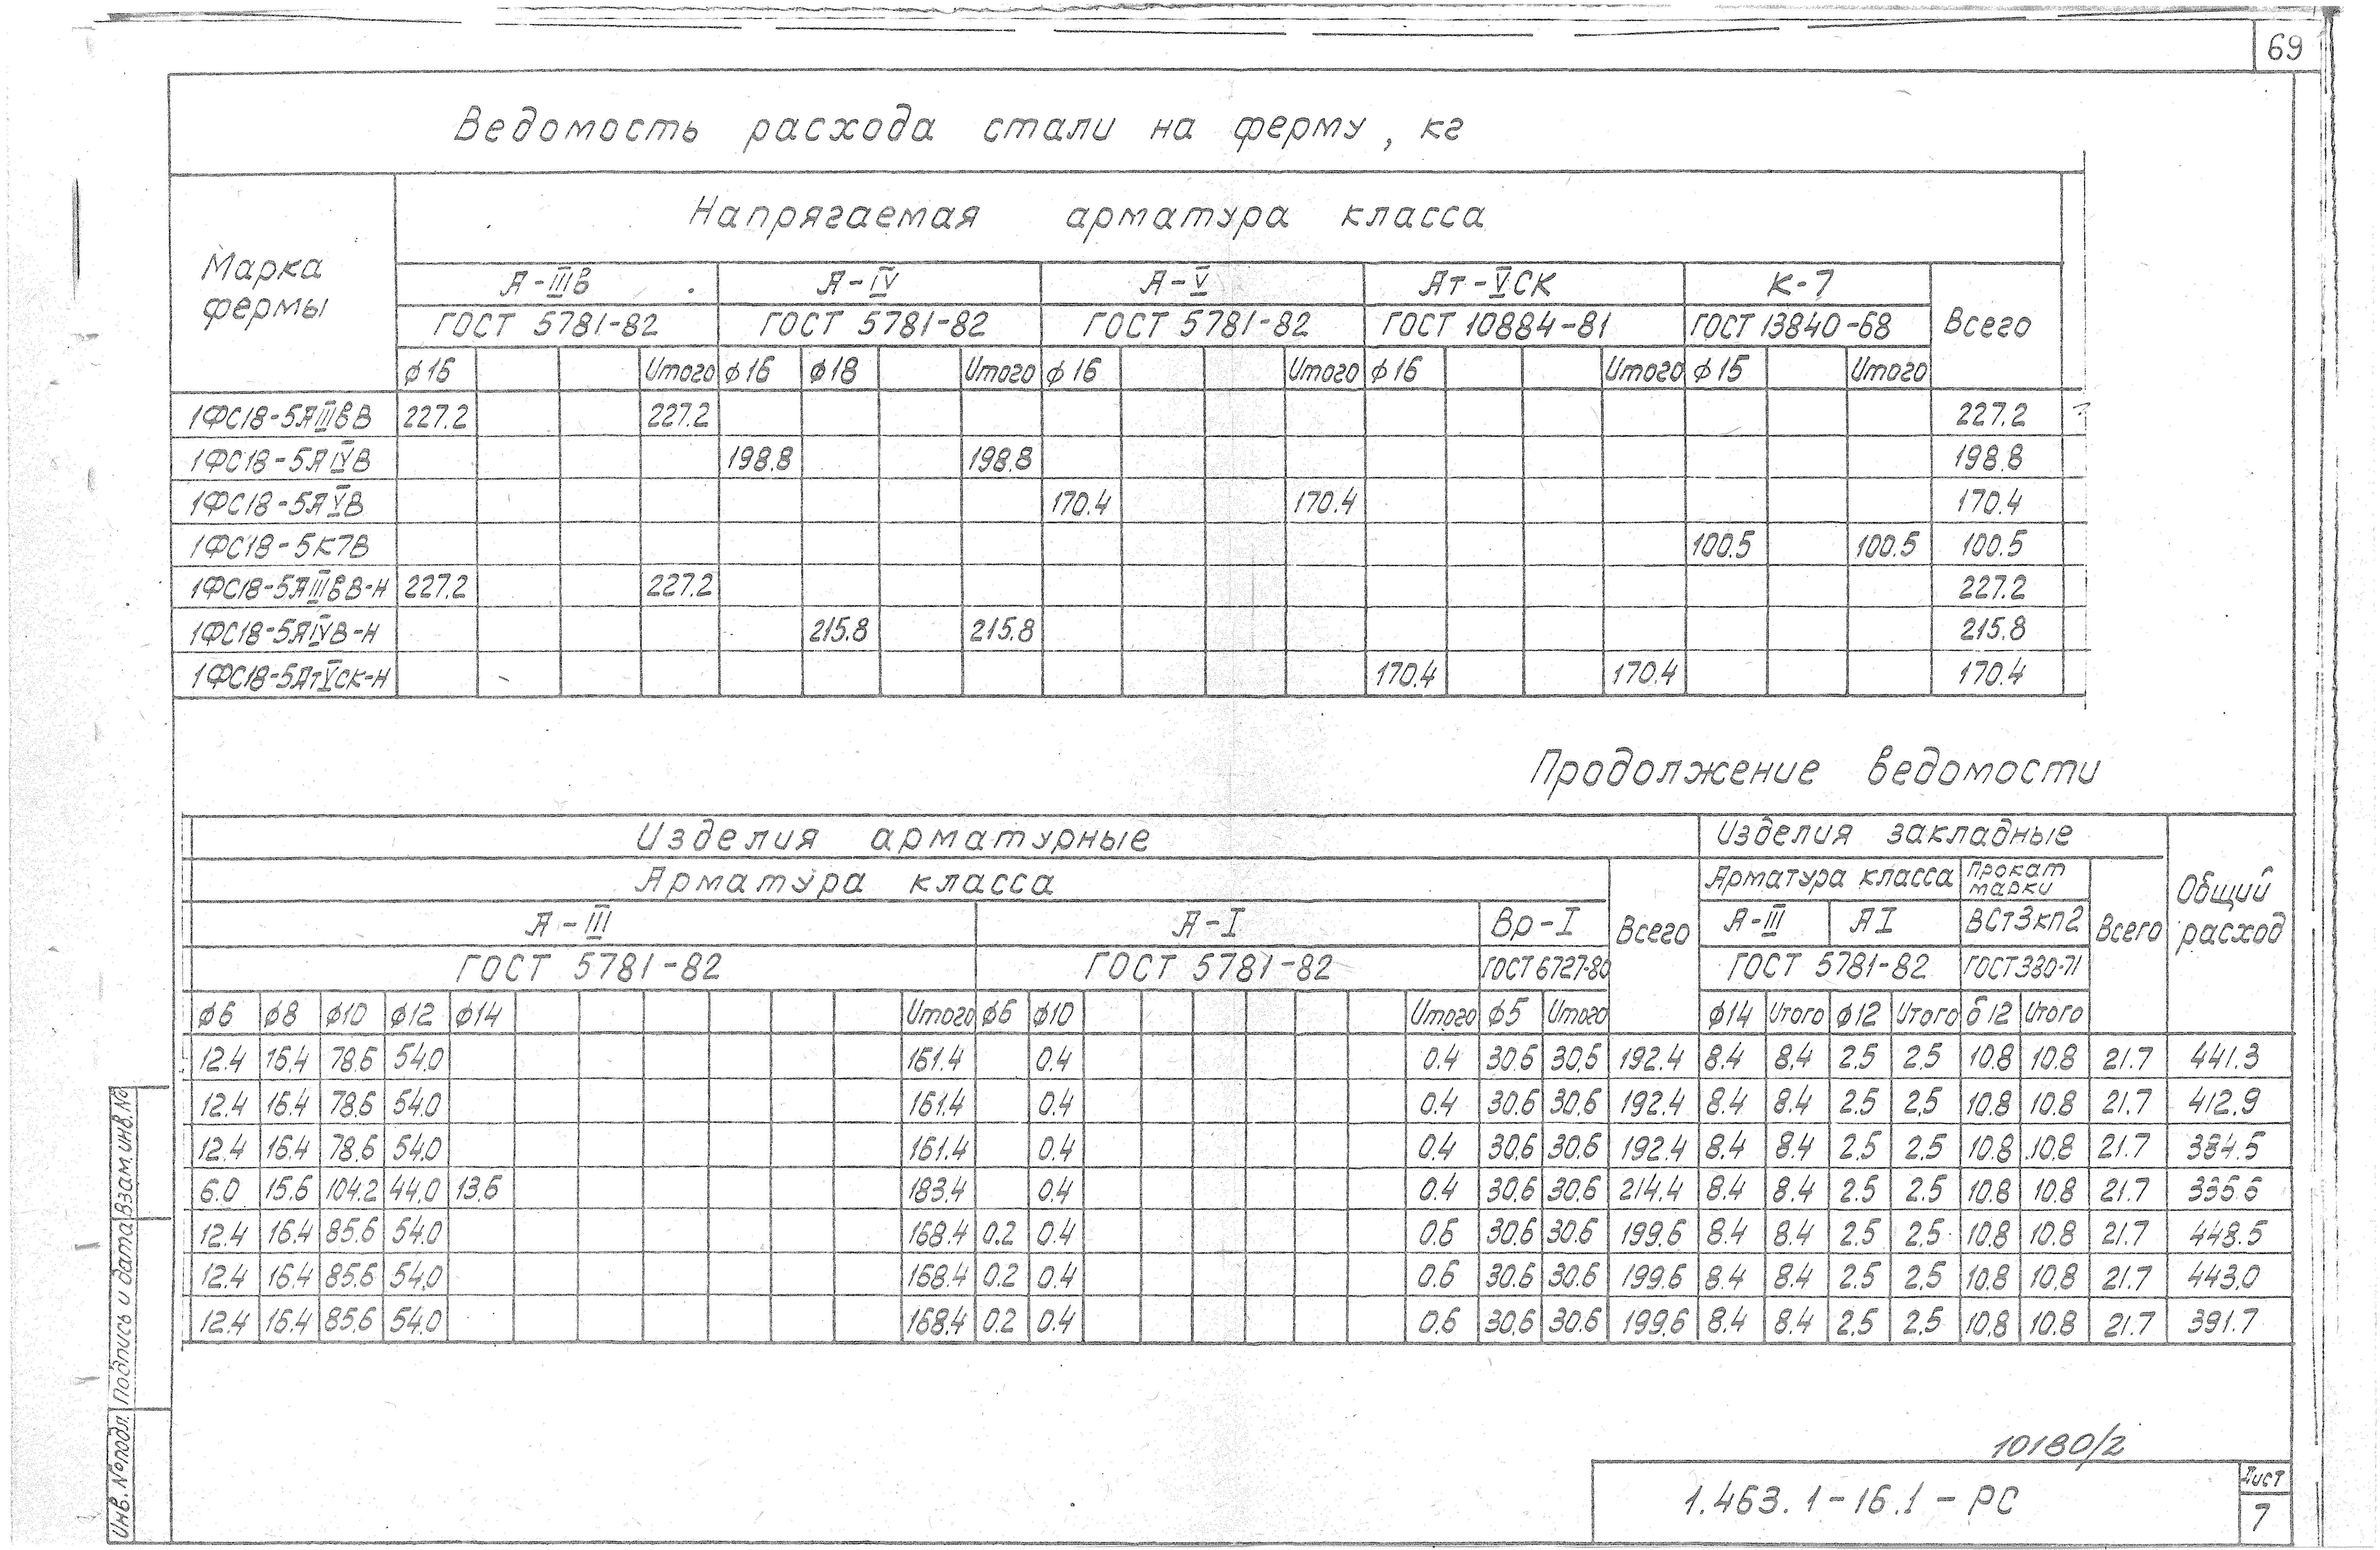 69
Ведомость расхода стали на ферму, кг
Марка фермы
Напрягаемая арматура класса
А-IIIв А-IV А-V Ат-VСК К-7 Всего
ГОСТ 5781-82 ГОСТ 5781-82 ГОСТ 5781-82 ГОСТ 10884-81 ГОСТ 13840-68
ф16 Итого ф16 ф18 Итого ф16 Итого ф16 Итого ф15 Итого
1ФС18-5АIIIвВ 227.2 227.2 227.2
1ФС18-5АIVВ 198.8 198.8 198.8
1ФС18-5АVВ 170.4 170.4 170.4
1ФС18-5К7В 100.5 100.5 100.5
1ФС18-5АIIIвВ-Н 227.2 227.2 227.2
1ФС18-5АIVВ-Н 215.8 215.8 215.8
1ФС18-5АтVСК-Н 170.4 170.4 170.4
Продолжение ведомости
Изделия арматурные Изделия закладные Общий расход
Арматура класса Всего Арматура класса Прокат марки Всего
А-III А-I Вр-I А-III АI ВСт3кп2
ГОСТ 5781-82 ГОСТ 5781-82 ГОСТ 6727-80 ГОСТ 5781-82 ГОСТ 380-71
ф6 ф8 ф10 ф12 ф14 Итого ф6 ф10 Итого ф5 Итого ф14 Итого ф12 Итого б12 Итого
12.4 16.4 78.6 54.0 161.4 0.4 0.4 30.6 30.6 192.4 8.4 8.4 2.5 2.5 10.8 10.8 21.7 441.3
12.4 16.4 78.6 54.0 161.4 0.4 0.4 30.6 30.6 192.4 8.4 8.4 2.5 2.5 10.8 10.8 21.7 412.9
12.4 16.4 78.6 54.0 161.4 0.4 0.4 30.6 30.6 192.4 8.4 8.4 2.5 2.5 10.8 10.8 21.7 384.5
6.0 15.6 104.2 44.0 13.6 183.4 0.4 0.4 30.6 30.6 214.4 8.4 8.4 2.5 2.5 10.8 10.8 21.7 336.6
12.4 16.4 85.6 54.0 168.4 0.2 0.4 0.6 30.6 30.6 199.6 8.4 8.4 2.5 2.5 10.8 10.8 21.7 448.5
12.4 16.4 85.6 54.0 168.4 0.2 0.4 0.6 30.6 30.6 199.6 8.4 8.4 2.5 2.5 10.8 10.8 21.7 443.0
12.4 16.4 85.6 54.0 168.4 0.2 0.4 0.6 30.6 30.6 199.6 8.4 8.4 2.5 2.5 10.8 10.8 21.7 391.7
Инв. № подл. Подпись и дата Взам. инв. №
10180/2
1.463.1-16.1-РС
Лист
7